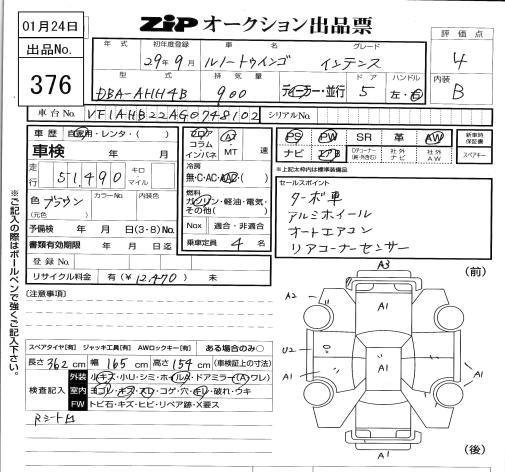 01月24日
出品No.
376
ZIP オークション出品票
評価点
4
内装
B
年式 初年度登録 車名 グレード
29年9月 ルノートゥインゴ インテンス
型式 排気量 ドア ハンドル
DBA-AHH4B 900 ディーラー・並行 5 左・右
車台No. VF1AHB22AG0748102 シリアルNo.
車歴 自家用・レンタ・( )
車検 年 月
走行 51,490 キロ マイル
色 ブラウン (元色) カラーNo. 内装色
予備検 年 月 日(3・8)No.
書類有効期限 年 月 日迄
登録No.
リサイクル料金 有(¥12,470) 未
フロア コラム インパネ A MT 速
冷房
無・C・AC・AAC・( )
燃料
ガソリン・軽油・電気・その他( )
Nox 適合・非適合
乗車定員 4 名
PS PW SR 革 AW
ナビ エアB 社外ナビ 社外AW
新車時保証書
スペアキー
※上記太枠内は標準装備品
セールスポイント
ターボ車
アルミホイール
オートエアコン
リアコーナーセンサー
(注意事項)
スペアタイヤ[有] ジャッキ工具[有] AWロックキー[有] ある場合のみ○
長さ362cm 幅165cm 高さ154cm (車検証上の寸法)
検査記入
外装 小キズ・小U・シミ・ホイルA・ドアミラー(A)ワレ)
室内 ヨゴレ・キズ・スレ・コゲ・穴・キレ・破れ・ウキ
FW トビ石・キズ・ヒビ・リペア跡・X要ス
(前)
A3
A2
A1
U2
A1
A1
A1
A1
A1
(後)
※ご記入の際はボールペンで強くご記入下さい。